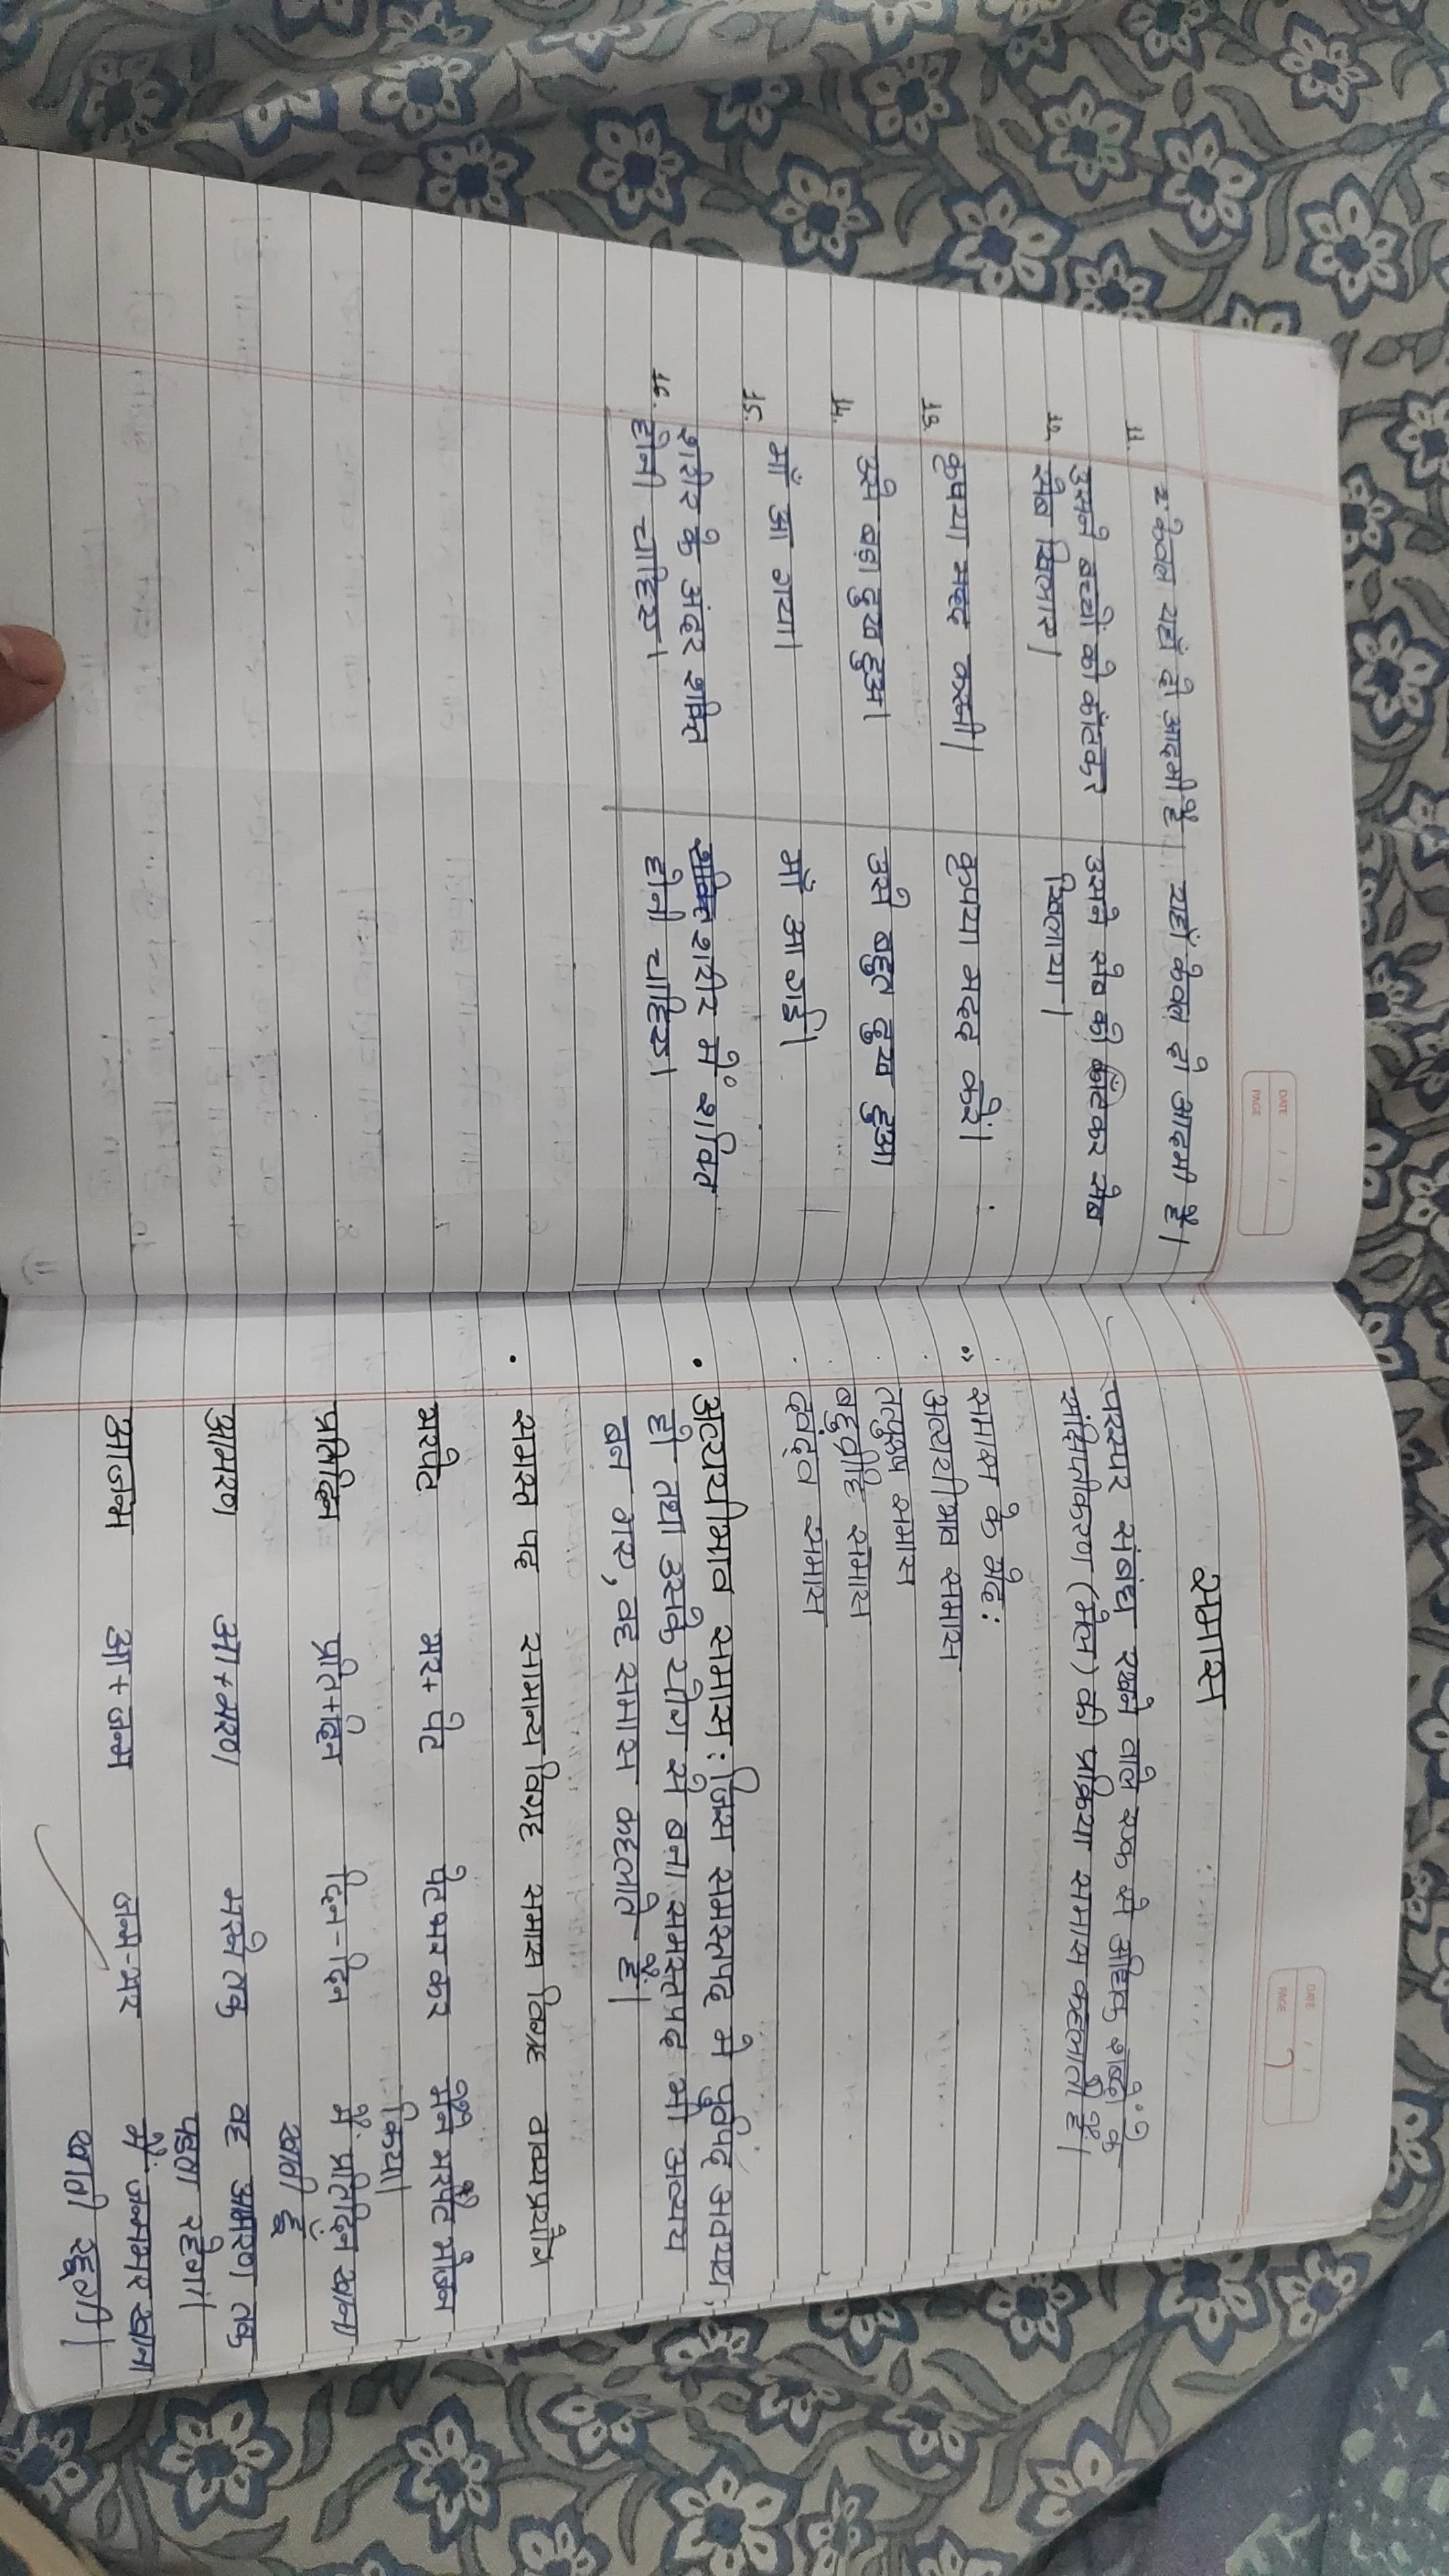 DATE
PAGE
11. केवल यहाँ दो आदमी हैं यहाँ केवल दो आदमी हैं।
12. उसने बच्चों को काँटकर उसने सेब को काँटकर सेब
सेब खिलाए। खिलाया।
13. कृपया मदद करनी। कृपया मदद करें।
14. उसे बड़ा दुख हुआ। उसे बहुत दुख हुआ
15. माँ आ गया। माँ आ गई।
16. शरीर के अंदर शक्ति शरीर में शक्ति
होनी चाहिए। होनी चाहिए।
DATE
PAGE
समास
परस्पर संबंध रखने वाले एक से अधिक शब्दों के
संक्षिप्तीकरण (मेल) की प्रक्रिया समास कहलाती हैं।
समास के भेद:
अव्ययीभाव समास
तत्पुरुष समास
बहुव्रीहि समास
द्वंद्व समास
• अव्ययीभाव समास: जिस समस्तपद में पूर्वपद अवयय,
हो तथा उसके योग से बना समस्तपद भी अव्यय
बन गए, वह समास कहलाते हैं।
• समास्त पद सामान्य विग्रह समास विग्रह वाक्यप्रयोग
भरपेट भर+ पेट पेट भर कर मैंने भरपेट भोजन
किया।
प्रतिदिन प्रति+दिन दिन-दिन मैं प्रतिदिन खाना
खाती हूँ
आमरण आ+मरण मरने तक वह आमरण तक
पढ़ता रहेगा।
आजन्म आ+जन्म जन्म-भर मैं जन्मभर खाना
खाती रहूँगी।